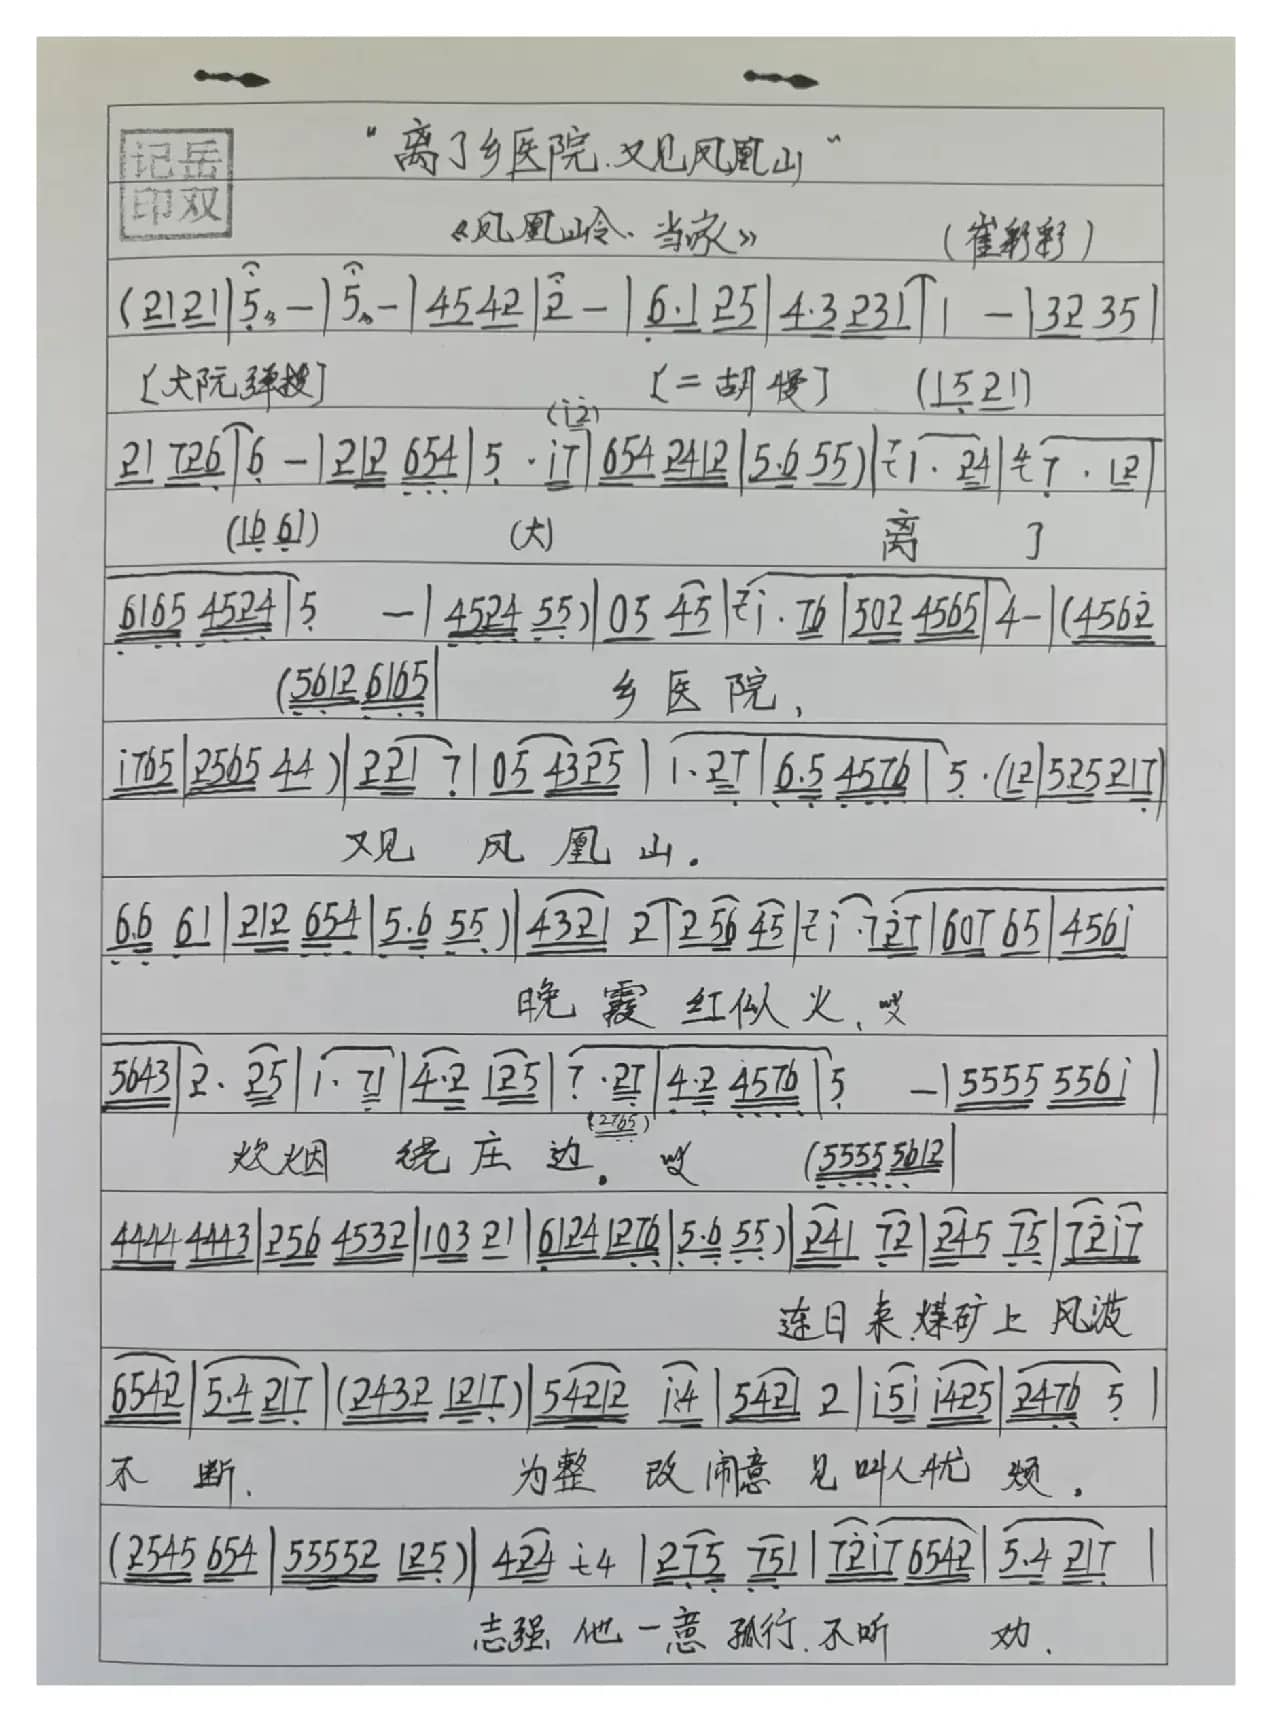 "离了乡医院.又见凤凰山"
记岳
印双
《凤凰岭.当家》 (崔彩彩)
(2121|5 -|5 -|4542|2 -|6·1 25|4·3 231|1 -|32 35|
[大阮弹拨] [二胡慢] (1521)
(i2)
21 726|6 -|212 654|5 · i7|654 2412|5·6 55)|i · 24|7 · 12|
(16 61) (大) 离 了
6165 4524|5 -|4524 55)|05 45|i · 76|502 4565|4-|(4562
(5612 6165| 乡医院,
i765|2565 44)|221 7|05 4325|1·27|6·5 4576|5·(12|525217)
又见 凤凰山.
6·6 61|212 654|5·6 55)|4321 2|256 45|i·727|607 65|456i
晚霞红似火,哎
5643|2· 25|1·71|4·2 125|7 ·27|4·2 4576|5 -|5555 556i|
(2765)
炊烟 绕庄边.哎 (5555 5612|
4444 4443|256 4532|103 21|6124 1276|5·6 55)|241 72|245 75|72i7
连日来.煤矿上风波
6542|5·4 217|(2432 1217)|54212 i4|5421 2|i5i i425|2476 5|
不断. 为整改闹意见叫人忧烦.
(2545 654|55552 125)|424 i4|275 751|72i7 6542|5·4 217|
志强他一意孤行.不听 劝.